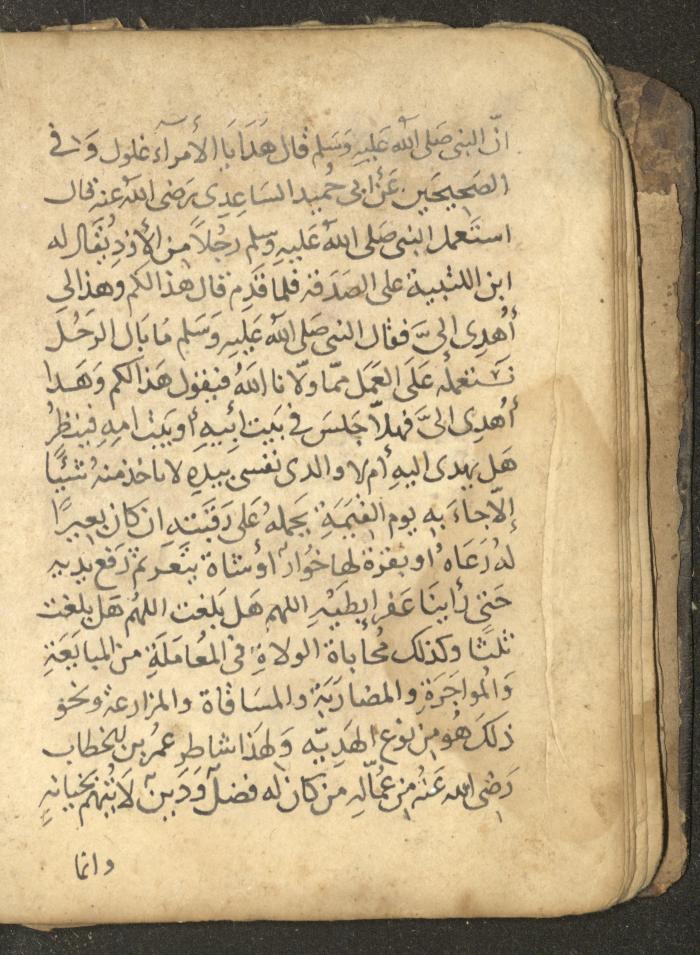 انّ النبى صَلى الله عَليهِ وَسَلم قال هَدَايَا الأمرآءَ غلول وَفى
الصَحِيحَين عَن ابى حُميد السَاعِدِى رَضى الله عنه قال
استَعمل النبى صَلى الله عَليهِ وسلم رجُلاً من الأزدِ يُقَال له
ابن اللتبية على الصَدَقة فلما قدَم قال هَذا لكم وهذا لى
أُهدِى الىَّ فقال النبى صَلى الله عَليهِ وَسَلم مَا بَال الرَجُل
نَستعملُه عَلَى العَمَل ممّا ولّانا اللهُ فيقول هَذا لكم وَهَذا
أُهدِى الىَّ فهلاّ جَلسَ فى بَيت ابيهِ أو بَيت امهِ فينظرُ
هَل يهدى اليهِ أم لا والذى نفسى بيدهِ لا ياخذ منهُ شيئًا
إلاّ جاءَ به يوم القيَمَةِ يَحملهُ عَلى رَقبَته ان كان بعيرًا
لهُ رُغَاءٌ او بقرَة لها خُوارٌ أو شاة تيَعَر ثم رَفع يديه
حَتى رأينَا عَفر ابطيْهِ اللهم هَل بَلغت اللهُم هَل بلغت
ثلثًا وكذلك مُحاباة الولاةِ فى المُعَامَلَةِ من المبايَعَةِ
وَالمُواجَرَةِ والمضارَبَةِ والمسَاقاة والمزارعة ونحو
ذلكَ هُو من نوع الهَدِيّه وَلِهَذا شاطر عمرُ بن الخطاب
رَضى الله عَنهُ من عُمّالهِ من كان له فضلٌ وَدَينٌ لا يُتهم بخيانهٍ
وانما